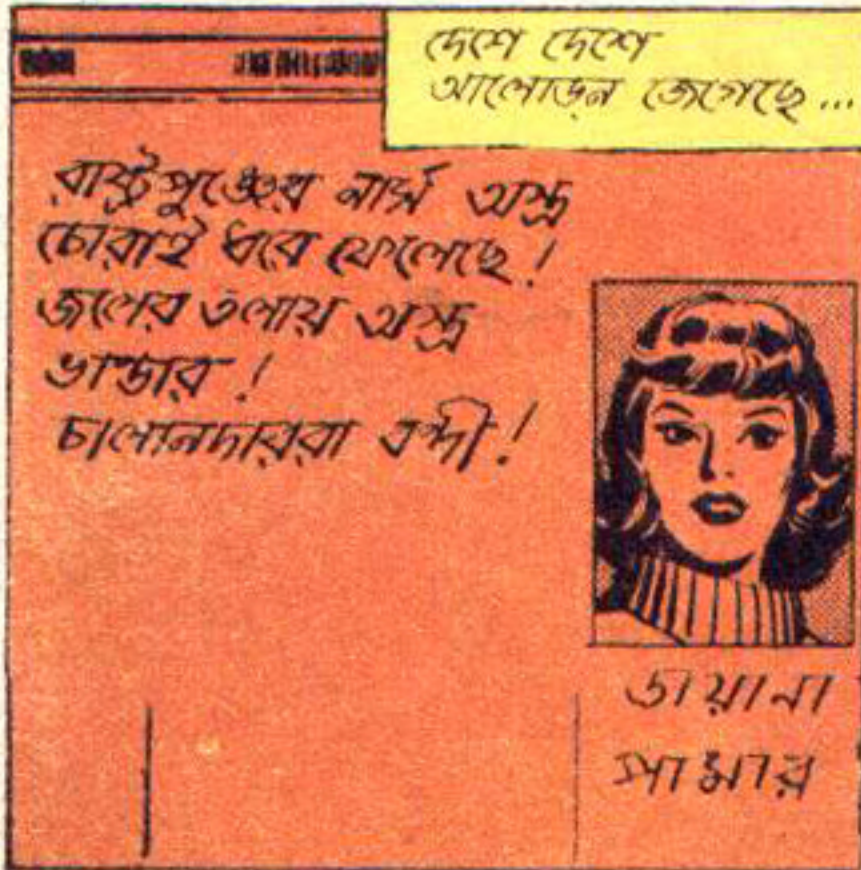 দেশে দেশে
আলোড়ন জেগেছে...
রাষ্ট্রপুঞ্জের নার্স অস্ত্র
চোরাই ধরে ফেলেছে!
জলের তলায় অস্ত্র
ভাণ্ডার!
চালানদাররা বন্দী!
ডায়ানা
পামার